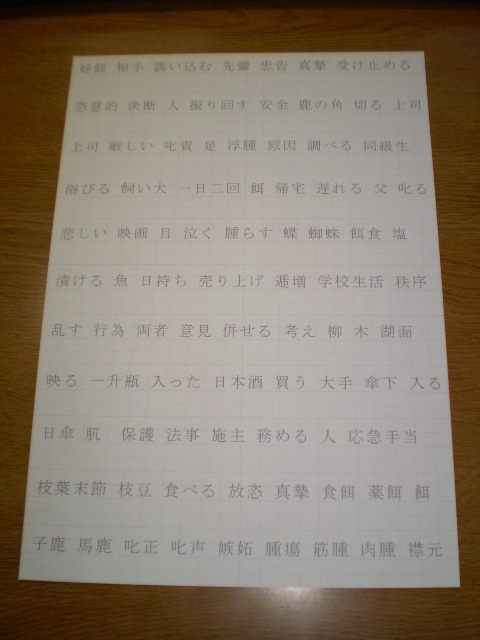 好餌 相手 誘い込む 先輩 忠告 真摯 受け止める
恣意的 決断 人 振り回す 安全 鹿の角 切る 上司
上司 厳しい 叱責 足 浮腫 原因 調べる 同級生
浴びる 飼い犬 一日二回 餌 帰宅 遅れる 父 叱る
悲しい 映画 目 泣く 腫らす 蝶 蜘蛛 餌食 塩
漬ける 魚 日持ち 売り上げ 逓増 学校生活 秩序
乱す 行為 両者 意見 併せる 考え 柳 木 湖面
映る 一升瓶 入った 日本酒 買う 大手 傘下 入る
日傘 肌 保護 法事 施主 務める 人 応急手当
枝葉末節 枝豆 食べる 放恣 真摯 食餌 薬餌 餌
子鹿 馬鹿 叱正 叱声 嫉妬 腫瘍 筋腫 肉腫 襟元